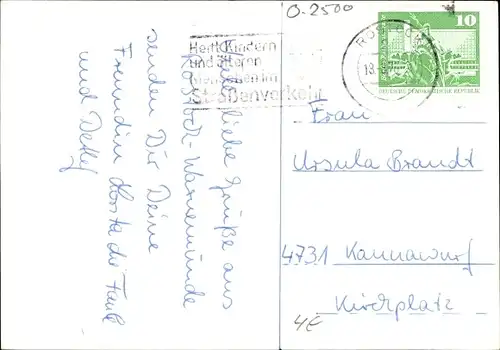 O-2500
10
DEUTSCHE DEMOKRATISCHE REPUBLIK
Helft Kindern
und älteren
Menschen im
Straßenverkehr
liebe Grüße aus
Rostock-Warnemünde
senden Dir Deine
Freundin
und Detlef
Frau
Ursula Brandt
4731 Kannawurf
Kirchplatz
4€